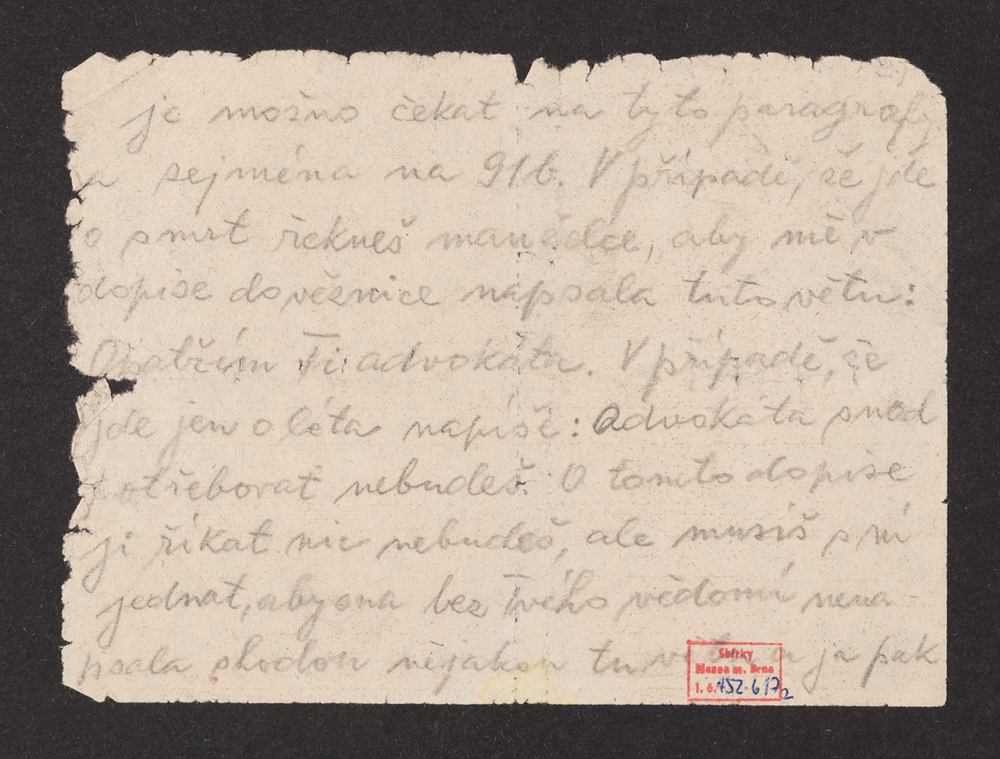 je možno čekat na tyto paragrafy
a sejména na 91b. V případě, že jde
o smrt řekneš manželce, aby mě v
dopise do věznice napsala tuto větu:
Opatřím Ti advokáta. V případě, že
jde jen o léta napíše: Advokáta snad
potřebovat nebudeš. O tomto dopise
ji říkat nic nebudeš, ale musíš s ní
jednat, aby ona bez Tvého vědomí nena-
psala shodou nějakou tu větu a já pak
Sbírky
Musea m. Brna
I. č. 152.617/2